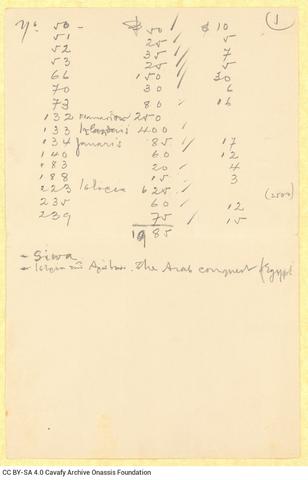 ①
Nº 50 — $ 50 $ 10
51 25 // 5
52 35 // 7
53 25 // 5
66 150 // 30
70 30 // 6
73 80 // 16
132 250
133 400
134 85 // 17
140 60 // 12
183 20 // 4
188 15 // 3
223 625 (2500)
235 60 // 12
239 75 // 15
1985
— Siwa
— The Arab conquest of Egypt
CC BY-SA 4.0 Cavafy Archive Onassis Foundation